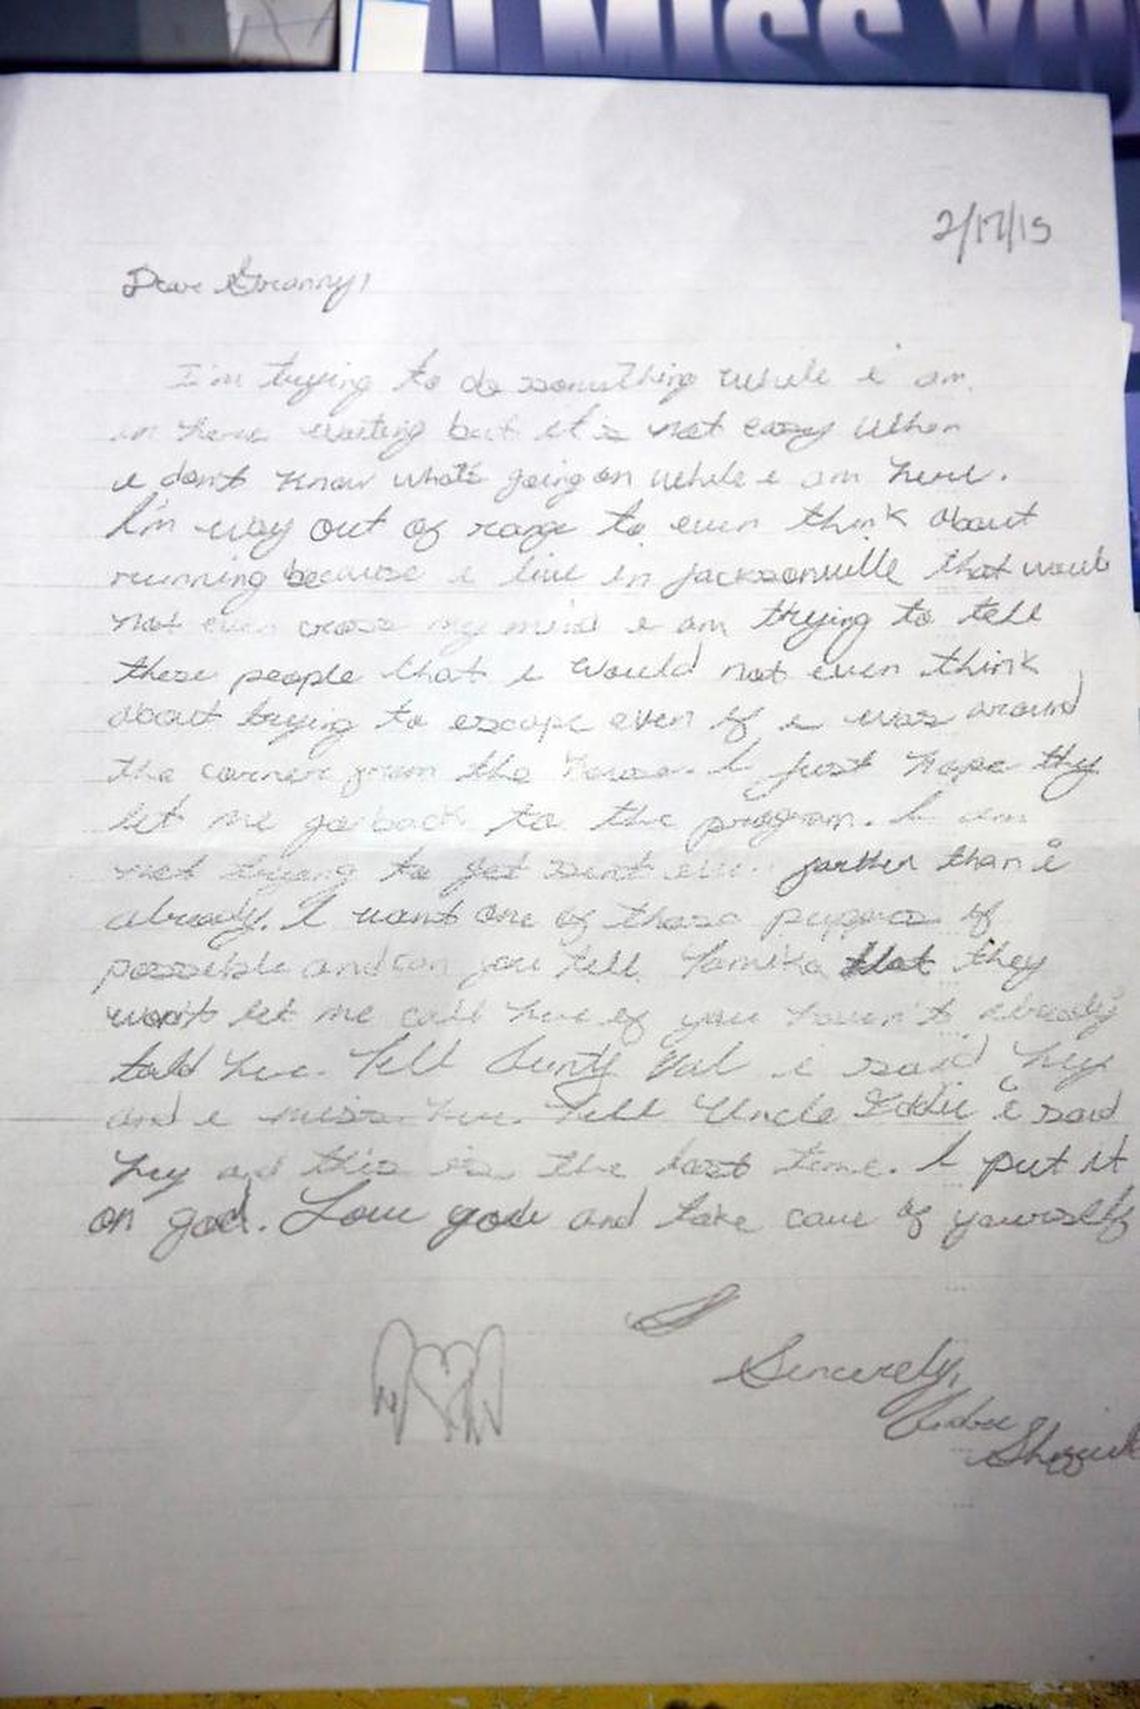 I MISS YOU
2/17/15
Dear Granny,
I'm trying to do something while i am
in here waiting but it's not easy when
i don't know what's going on while i am here.
I'm way out of range to even think about
running because i live in Jacksonville that would
not even cross my mind i am trying to tell
these people that i would not even think
about trying to escape even if i was around
the corner from the house. I just hope they
let me go back to the program. I am
not trying to get sent farther than i
already. I want one of those puppies if
possible and can you tell Tamika that they
won't let me call her if you haven't already
told her. Tell Aunty Val i said hey
and i miss her. Tell Uncle Eddie i said
hey and this is the last time. I put it
on god. Love you and take care of yourself
Sincerely,
Andre